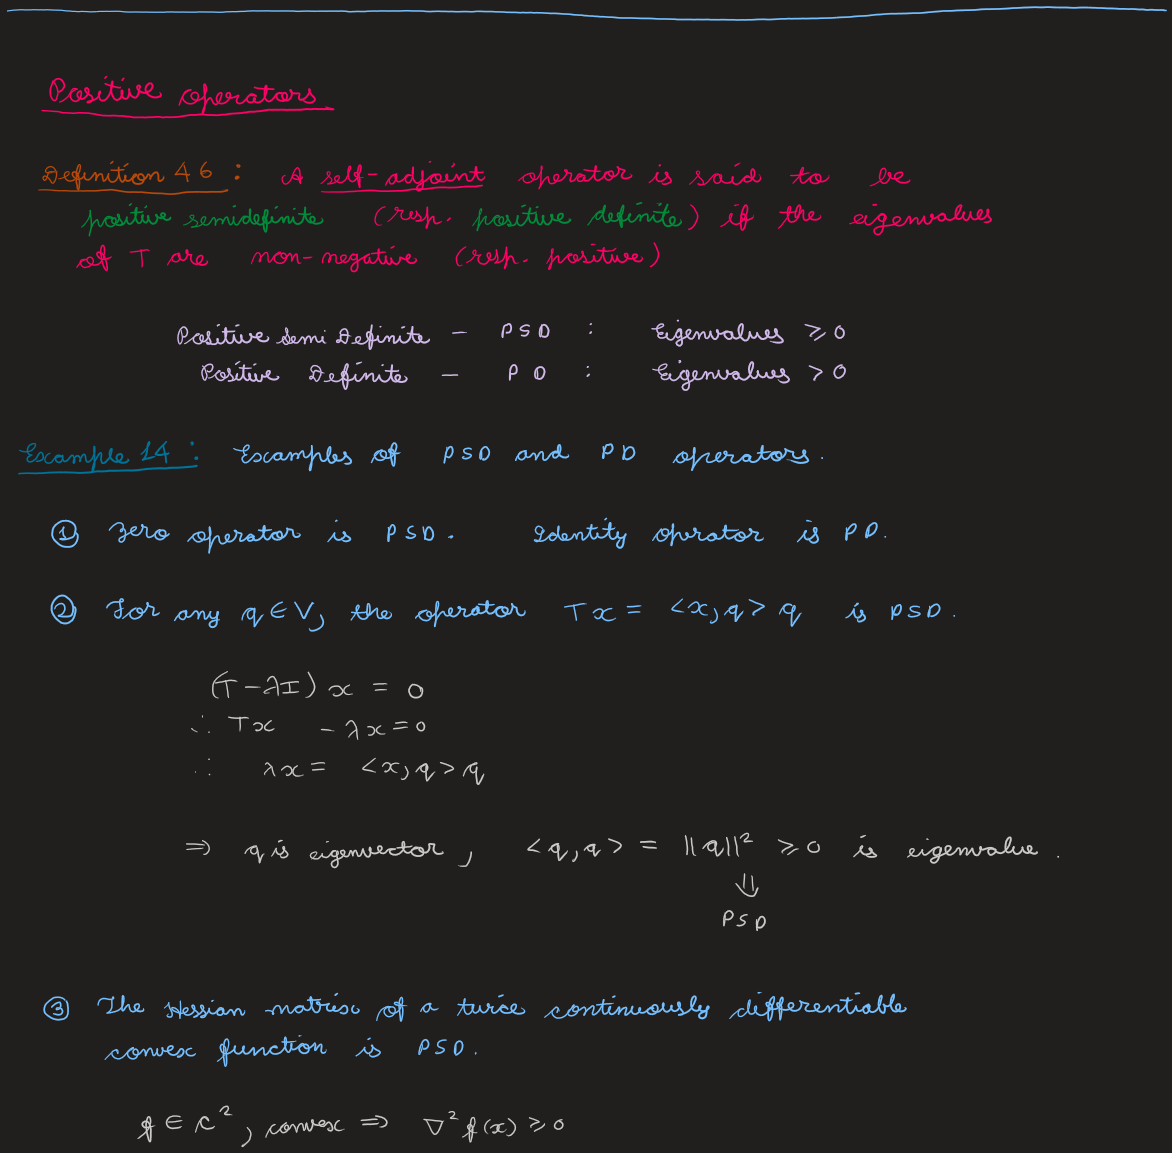 Positive operators
Definition 46 : A self-adjoint operator is said to be
positive semidefinite (resp. positive definite) if the eigenvalues
of T are non-negative (resp. positive)
Positive Semi Definite - PSD : Eigenvalues ⩾ 0
Positive Definite - PD : Eigenvalues > 0
Example 14 : Examples of PSD and PD operators.
① Zero operator is PSD. Identity operator is PD.
② For any q ∈ V, the operator Tx = <x,q> q is PSD.
(T - λI) x = 0
∴ Tx - λx = 0
∴ λx = <x,q> q
⇒ q is eigenvector, <q,q> = ||q||² ⩾ 0 is eigenvalue.
⇓
PSD
③ The Hessian matrix of a twice continuously differentiable
convex function is PSD.
f ∈ C², convex ⇒ ∇²f(x) ⩾ 0